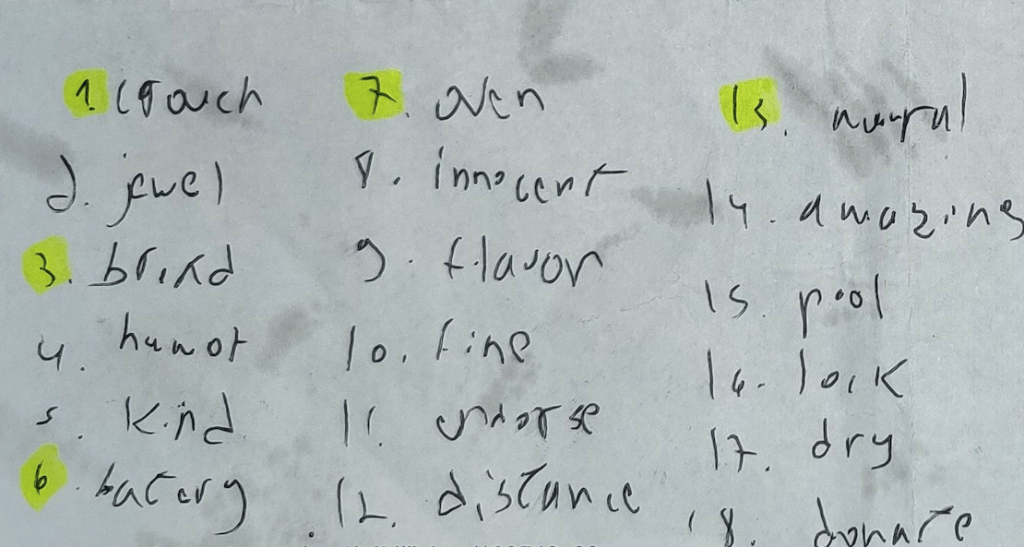 1. crouch
2. jewel
3.
4. humor
5. kind
6. batery
7. oven
8. innocent
9. flavor
10. fine
11. endorse
12. distance
13.
14. amazing
15. pool
16. lock
17. dry
18. donate